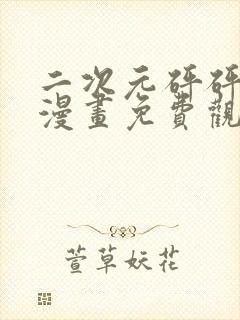 二次元砰砰
漫畫免費觀
萱草妖花